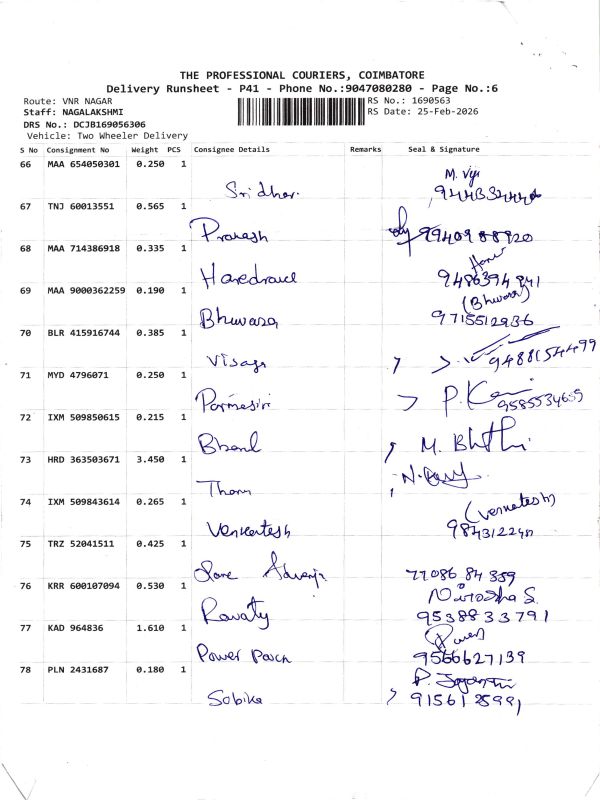 THE PROFESSIONAL COURIERS, COIMBATORE
Delivery Runsheet - P41 - Phone No.:9047080280 - Page No.:6
Route: VNR NAGAR
RS No.: 1690563
Staff: NAGALAKSHMI
RS Date: 25-Feb-2026
DRS No.: DCJB169056306
Vehicle: Two Wheeler Delivery
S No Consignment No Weight PCS Consignee Details Remarks Seal & Signature
66 MAA 654050301 0.250 1
Sridhar.
67 TNJ 60013551 0.565 1
Prakash
68 MAA 714386918 0.335 1
9486394841
69 MAA 9000362259 0.190 1
(Bhuvana)
Bhuvana 9715512936
70 BLR 415916744 0.385 1
9488154499
71 MYD 4796071 0.250 1
P.
9585534655
72 IXM 509850615 0.215 1
M.
73 HRD 363503671 3.450 1
74 IXM 509843614 0.265 1
(Venkatesh)
Venkatesh
75 TRZ 52041511 0.425 1
77086 84359
76 KRR 600107094 0.530 1
Nirosha S.
Ravaty 9538833791
77 KAD 964836 1.610 1
Power 9566627139
78 PLN 2431687 0.180 1
Sobika 9156125991